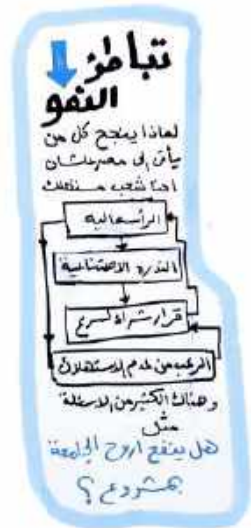 تباطؤ
النمو
لماذا ينجح كل من
يأتى إلى مصر علشان
احنا شعب مستهلك
الرأسمالية
الندرة الاصطناعية
قرار شراء أسرع
الرعب من عدم الاستهلاك
وهناك الكثير من الاسئلة
مثل
هل ينفع اروح الجامعة
بمشروع؟